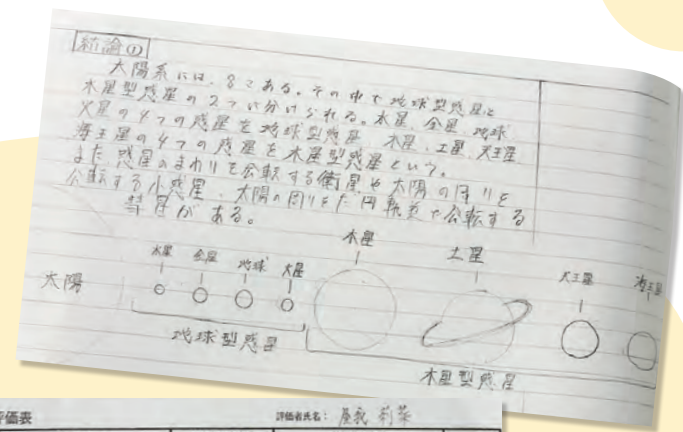 結論①
太陽系には、8こある。その中で地球型惑星と
木星型惑星の2つに分けられる。水星、金星、地球
火星の4つの惑星を地球型惑星、木星、土星、天王星
海王星の4つの惑星を木星型惑星という。
また惑星のまわりを公転する衛星や太陽の周りを
公転する小惑星、太陽の周りをだ円軌道で公転する
彗星がある。
木星 土星
水星 金星 地球 火星 天王星 海王星
太陽
地球型惑星
木星型惑星
評価表 評価者氏名: